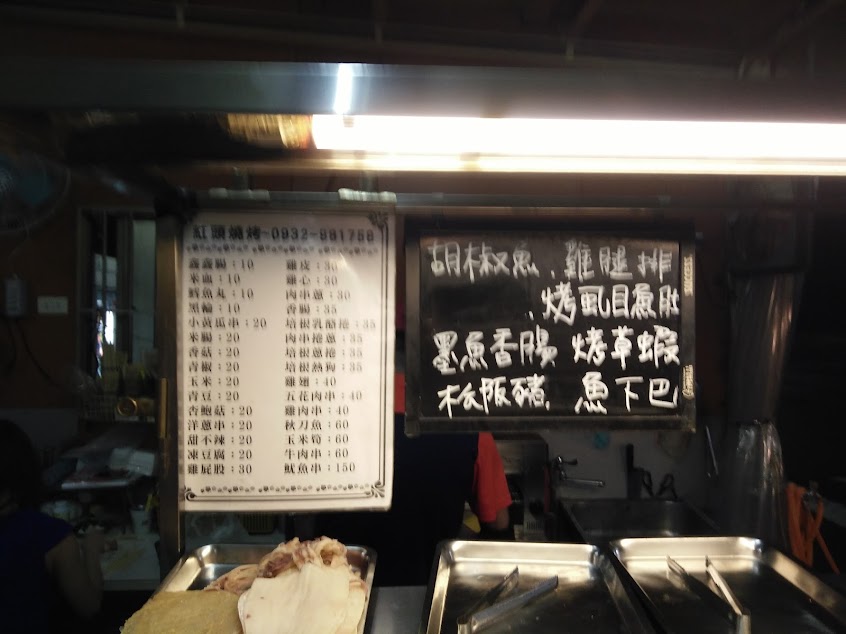 紅頭燒烤~0932-981756
鑫鑫腸:10 雞皮:30
米血:10 雞心:30
鱈魚丸:10 肉串蔥:30
黑輪:10 香腸:35
小黃瓜串:20 培根乳酪捲:35
米腸:20 肉串捲蔥:35
香菇:20 培根捲蔥:35
青椒:20 培根熱狗:35
玉米:20 雞翅:40
青豆:20 五花肉串:40
杏鮑菇:20 雞肉串:40
洋蔥串:20 秋刀魚:60
甜不辣:20 玉米筍:60
凍豆腐:20 牛肉串:60
雞屁股:30 魷魚串:150
胡椒魚、雞腿排
、烤虱目魚肚
墨魚香腸 烤草蝦
松阪豬 魚下巴